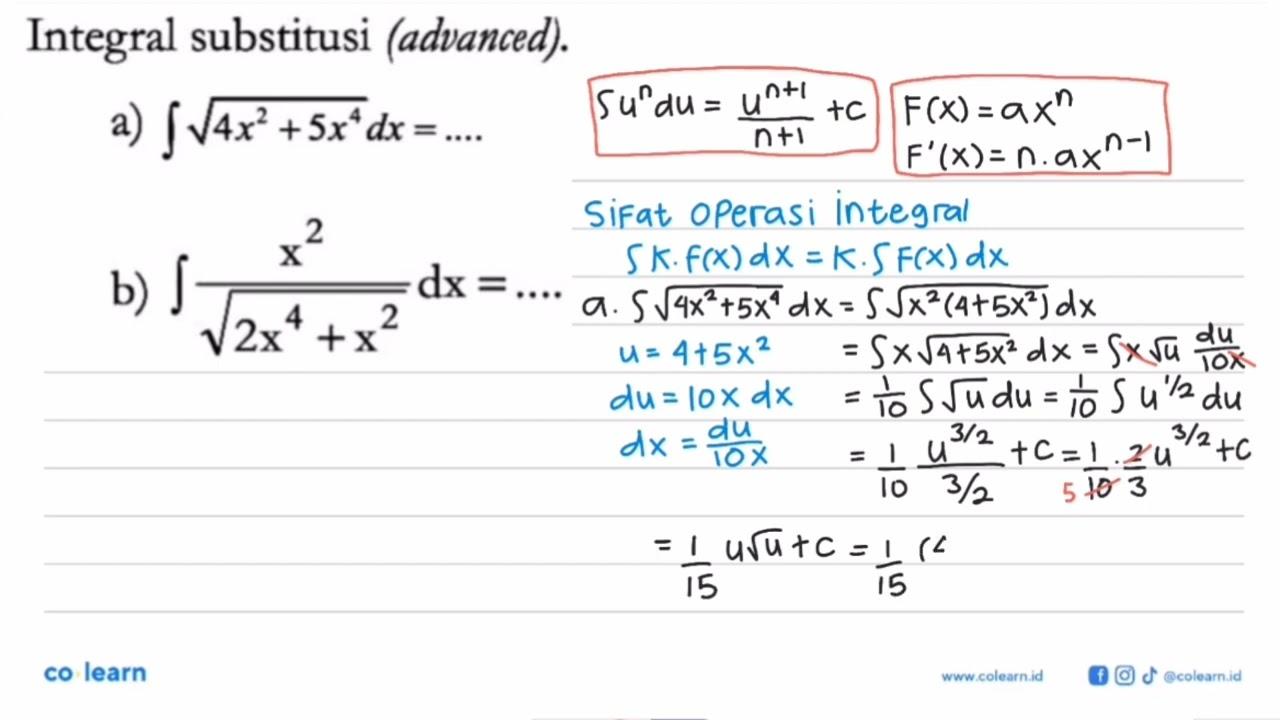 Integral substitusi (advanced).
a) ∫√(4x² + 5x⁴) dx = ....
b) ∫ x²/√(2x⁴ + x²) dx = ....
∫uⁿ du = uⁿ⁺¹/(n+1) + c
F(x) = axⁿ
F'(x) = n.axⁿ⁻¹
Sifat operasi integral
∫K.f(x) dx = K.∫F(x) dx
a. ∫√(4x²+5x⁴) dx = ∫√(x²(4+5x²)) dx
u = 4+5x²
du = 10x dx
dx = du/10x
= ∫x√(4+5x²) dx = ∫x√u du/10x
= 1/10 ∫√u du = 1/10 ∫ u^(1/2) du
= 1/10 u^(3/2)/(3/2) + c = 1/10 . 2/3 u^(3/2) + c
5
= 1/15 u√u + c = 1/15 (4
co learn
www.colearn.id
@colearn.id